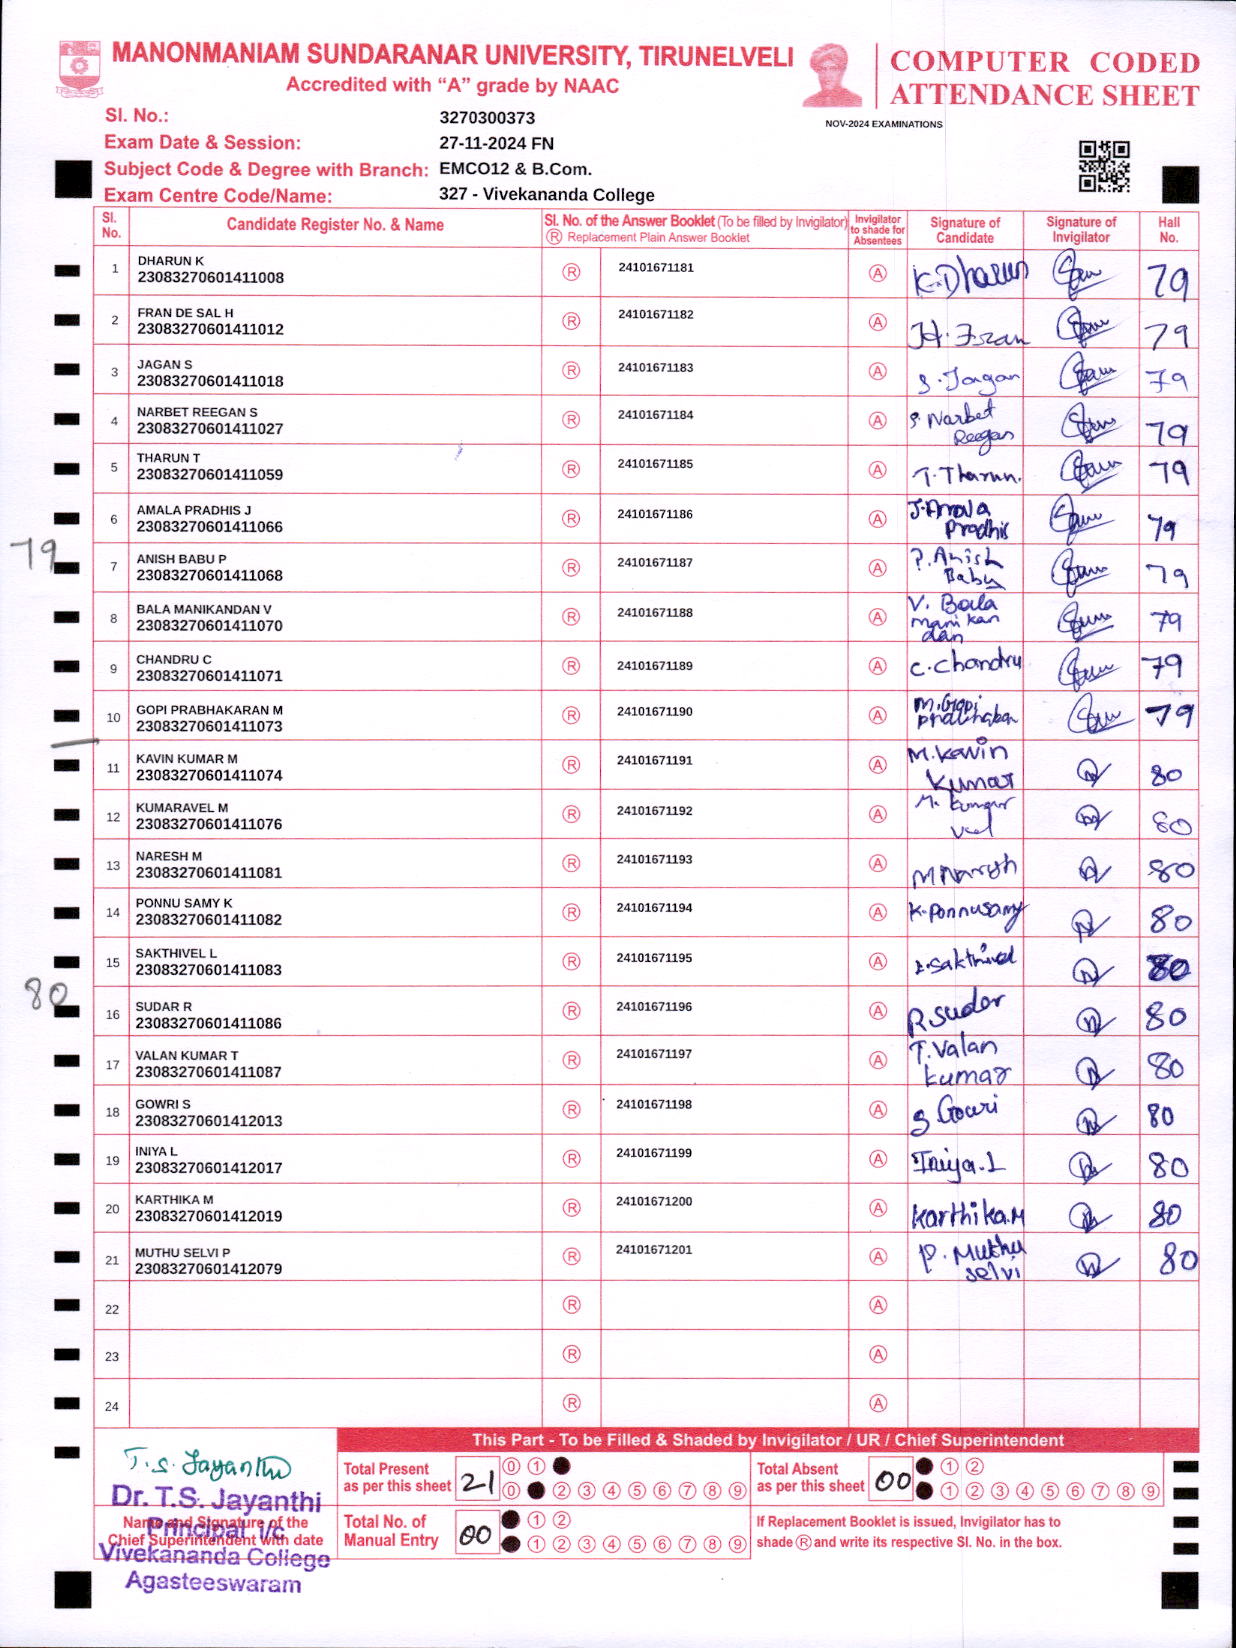 MANONMANIAM SUNDARANAR UNIVERSITY, TIRUNELVELI
Accredited with “A” grade by NAAC
COMPUTER CODED
ATTENDANCE SHEET
NOV-2024 EXAMINATIONS
Sl. No.: 3270300373
Exam Date & Session: 27-11-2024 FN
Subject Code & Degree with Branch: EMCO12 & B.Com.
Exam Centre Code/Name: 327 - Vivekananda College
Sl. No. Candidate Register No. & Name Sl. No. of the Answer Booklet (To be filled by Invigilator) Ⓡ Replacement Plain Answer Booklet Invigilator to shade for Absentees Signature of Candidate Signature of Invigilator Hall No.
1 DHARUN K 23083270601411008 Ⓡ 24101671181 Ⓐ K.Dharun 79
2 FRAN DE SAL H 23083270601411012 Ⓡ 24101671182 Ⓐ H.Fran 79
3 JAGAN S 23083270601411018 Ⓡ 24101671183 Ⓐ S.Jagan 79
4 NARBET REEGAN S 23083270601411027 Ⓡ 24101671184 Ⓐ S.Narbet Reegan 79
5 THARUN T 23083270601411059 Ⓡ 24101671185 Ⓐ T.Tharun. 79
6 AMALA PRADHIS J 23083270601411066 Ⓡ 24101671186 Ⓐ J.Amala Pradhis 79
79
7 ANISH BABU P 23083270601411068 Ⓡ 24101671187 Ⓐ P.Anish Babu 79
8 BALA MANIKANDAN V 23083270601411070 Ⓡ 24101671188 Ⓐ V. Bala mani kan dan 79
9 CHANDRU C 23083270601411071 Ⓡ 24101671189 Ⓐ C.Chandru 79
10 GOPI PRABHAKARAN M 23083270601411073 Ⓡ 24101671190 Ⓐ M.Gopi 79
11 KAVIN KUMAR M 23083270601411074 Ⓡ 24101671191 Ⓐ M.Kavin Kumar 80
12 KUMARAVEL M 23083270601411076 Ⓡ 24101671192 Ⓐ M. Kumar vel 80
13 NARESH M 23083270601411081 Ⓡ 24101671193 Ⓐ M Naresh 80
14 PONNU SAMY K 23083270601411082 Ⓡ 24101671194 Ⓐ K.Ponnusamy 80
15 SAKTHIVEL L 23083270601411083 Ⓡ 24101671195 Ⓐ L.Sakthivel 80
80
16 SUDAR R 23083270601411086 Ⓡ 24101671196 Ⓐ R.Sudar 80
17 VALAN KUMAR T 23083270601411087 Ⓡ 24101671197 Ⓐ T.Valan Kumar 80
18 GOWRI S 23083270601412013 Ⓡ 24101671198 Ⓐ S Gowri 80
19 INIYA L 23083270601412017 Ⓡ 24101671199 Ⓐ Iniya.L 80
20 KARTHIKA M 23083270601412019 Ⓡ 24101671200 Ⓐ Karthika.M 80
21 MUTHU SELVI P 23083270601412079 Ⓡ 24101671201 Ⓐ P. Muthu selvi 80
22 Ⓡ Ⓐ
23 Ⓡ Ⓐ
24 Ⓡ Ⓐ
This Part - To be Filled & Shaded by Invigilator / UR / Chief Superintendent
T.S. Jayanthi
Dr. T.S. Jayanthi
Principal i/c
Vivekananda College
Agasteeswaram
Name and Signature of the
Chief Superintendent with date
Total Present as per this sheet 21
0 1
0 2 3 4 5 6 7 8 9
Total Absent as per this sheet 00
1 2
1 2 3 4 5 6 7 8 9
Total No. of Manual Entry 00
1 2
1 2 3 4 5 6 7 8 9
If Replacement Booklet is issued, Invigilator has to
shade Ⓡ and write its respective Sl. No. in the box.